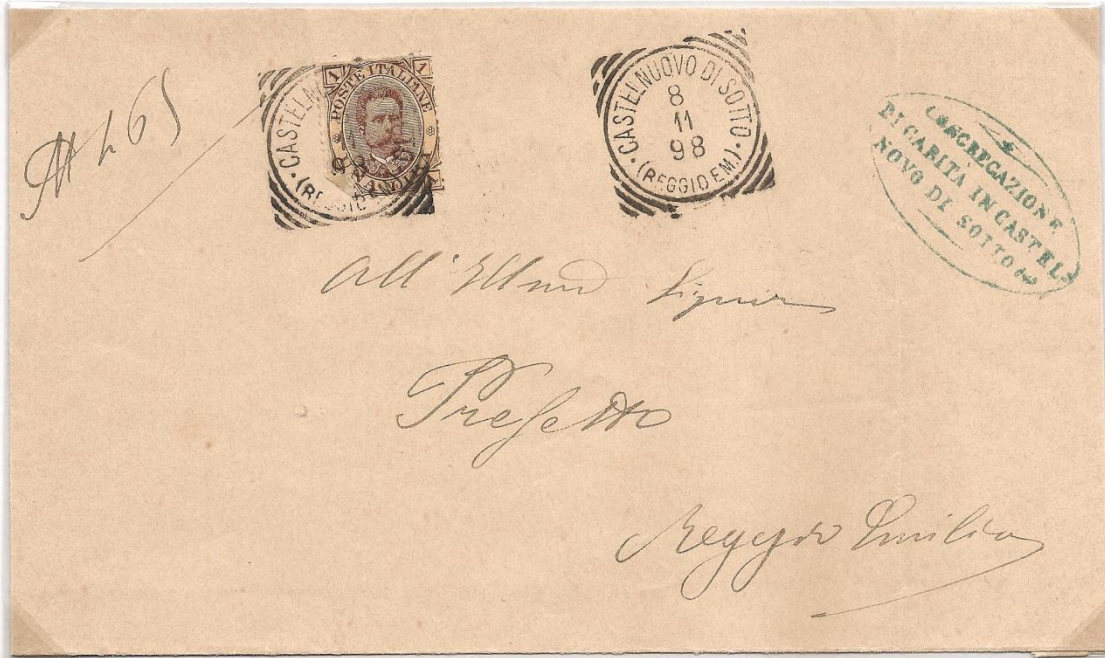 1 POSTE ITALIANE 1
UNA LIRA
CASTELN
(REGGIO
CASTELNUOVO DI SOTTO
8
11
98
(REGGIO EM.)
CONGREGAZIONE
DI CARITÀ IN CASTEL-
NOVO DI SOTTO
All' Illmo Signor
Prefetto
Reggio Emilia